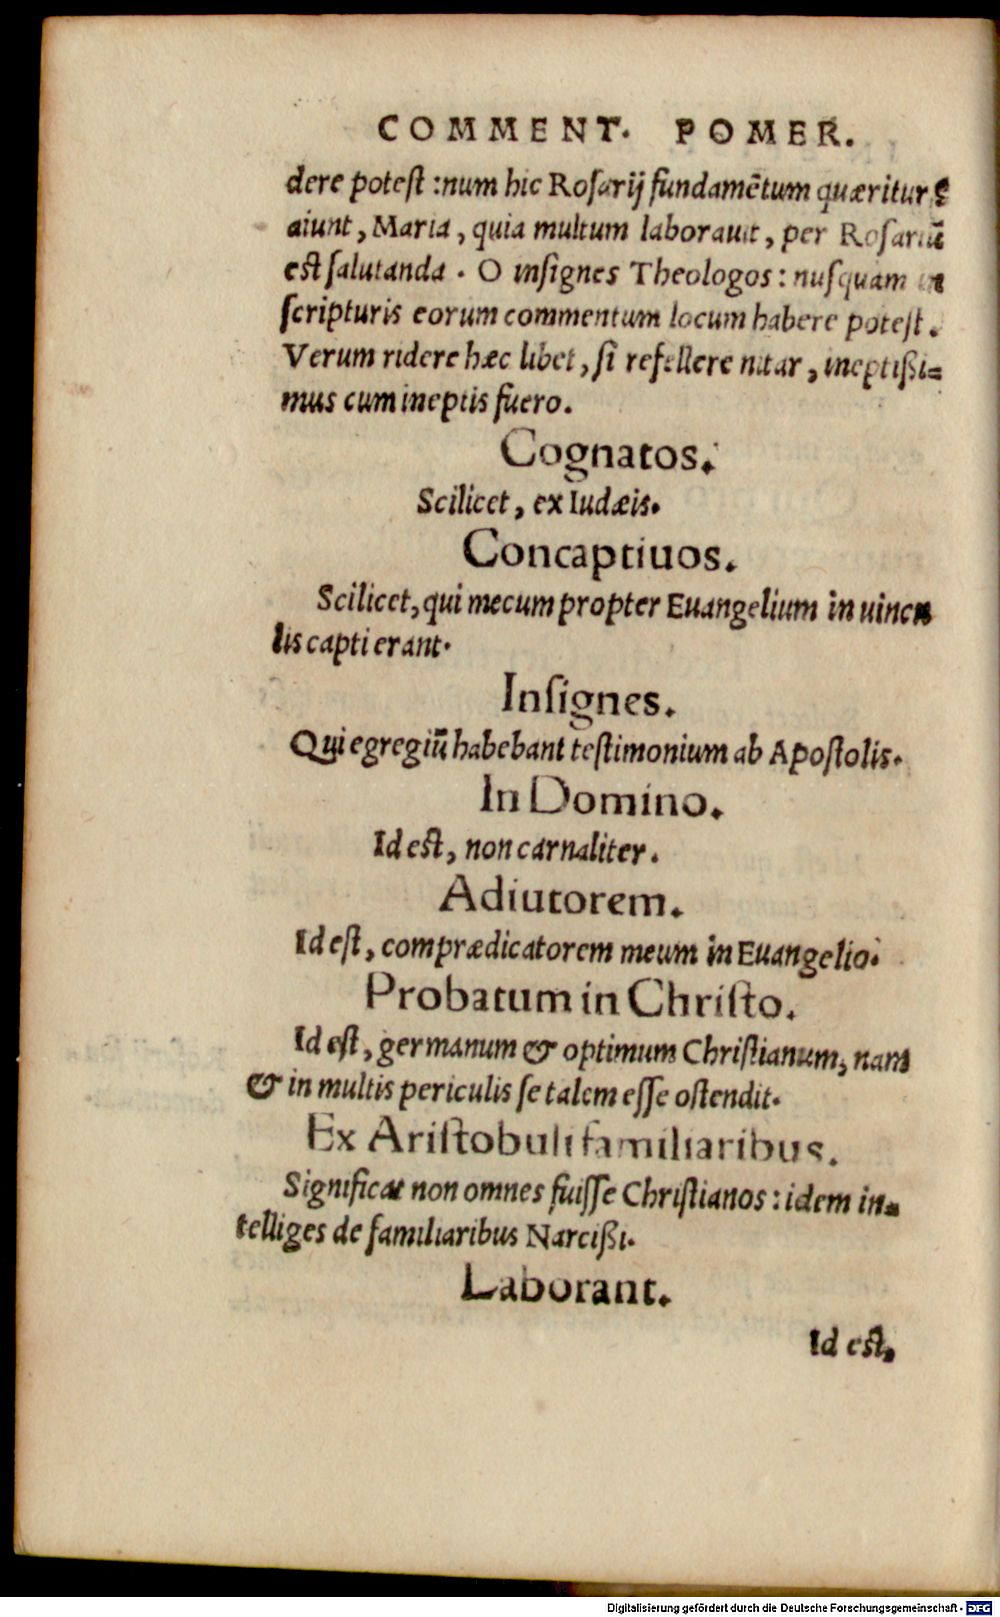 COMMENT. POMER.
dere potest : num hic Rosarij fundamētum quæritur ?
aiunt, Maria, quia multum laborauit, per Rosariū
est salutanda. O insignes Theologos: nusquam in
scripturis eorum commentum locum habere potest.
Verum ridere hæc libet, si refellere nitar, ineptißi=
mus cum ineptis fuero.
Cognatos.
Scilicet, ex Iudæis.
Concaptiuos.
Scilicet, qui mecum propter Euangelium in uincu
lis capti erant.
Insignes.
Qui egregiū habebant testimonium ab Apostolis.
In Domino.
Id est, non carnaliter.
Adiutorem.
Id est, comprædicatorem meum in Euangelio.
Probatum in Christo.
Id est, germanum & optimum Christianum, nam
& in multis periculis se talem esse ostendit.
Ex Aristobuli familiaribus.
Significat non omnes fuisse Christianos: idem in=
telliges de familiaribus Narcißi.
Laborant.
Id est,
Digitalisierung gefördert durch die Deutsche Forschungsgemeinschaft - DFG